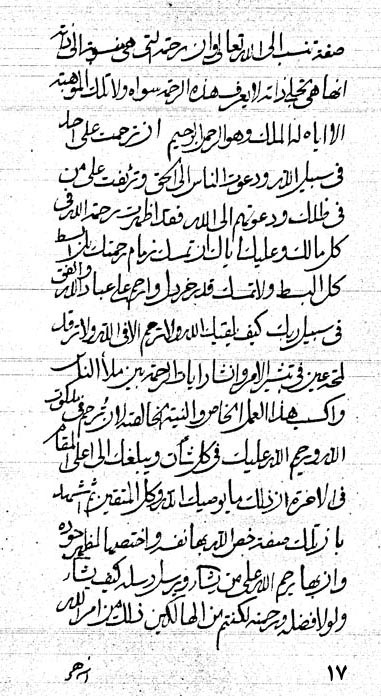 صفة تنسب الى الله تعالى وان رحمته التى هى منسوبة الى ذاته
انها هى تجلى ذاته لا يعرف هذه الرحمة سواه ولا تلك الموهبة
الا اياه له الملك وهو الرحمن الرحيم ان ترحمت على احد
فى سبيل الله ودعوت الناس الى الحق وترئفت على من
فى ظلك ودعوتهم الى الله فقد اظهرت رحمة الله فى
كل مالك وعليك اياك ان تمسك زمام رحمتك بل ابسط
كل البسط ولا تمسك قدر خردل وارحم على عباد الله وانفق
فى سبيل ربك كيف يلقيك الله ولا ترحم الا فى الله ولا ترقد
لمحة عين فى تبشير الامر وانشار اياط الرحمة بين ملأ الناس
واكسب هذا العمل الخاص والنية الخالصة ان ترحم فى ملكوت
الله ويرحم الله عليك فى كل شأن ويبلغك الى اعلى المقام
فى الاخرة ان ذلك ما يوصيك الله وكل المتقين ثم اشهد
بان تلك صفة خص الله بها نفسه واختصها لمظهر جوده
وان بها يرحم الله على من يشاء ويرسل رسله كيف يشاء
ولولا فضله ورحمته لكنتم من الهالكين ذلك من امر الله
١٧